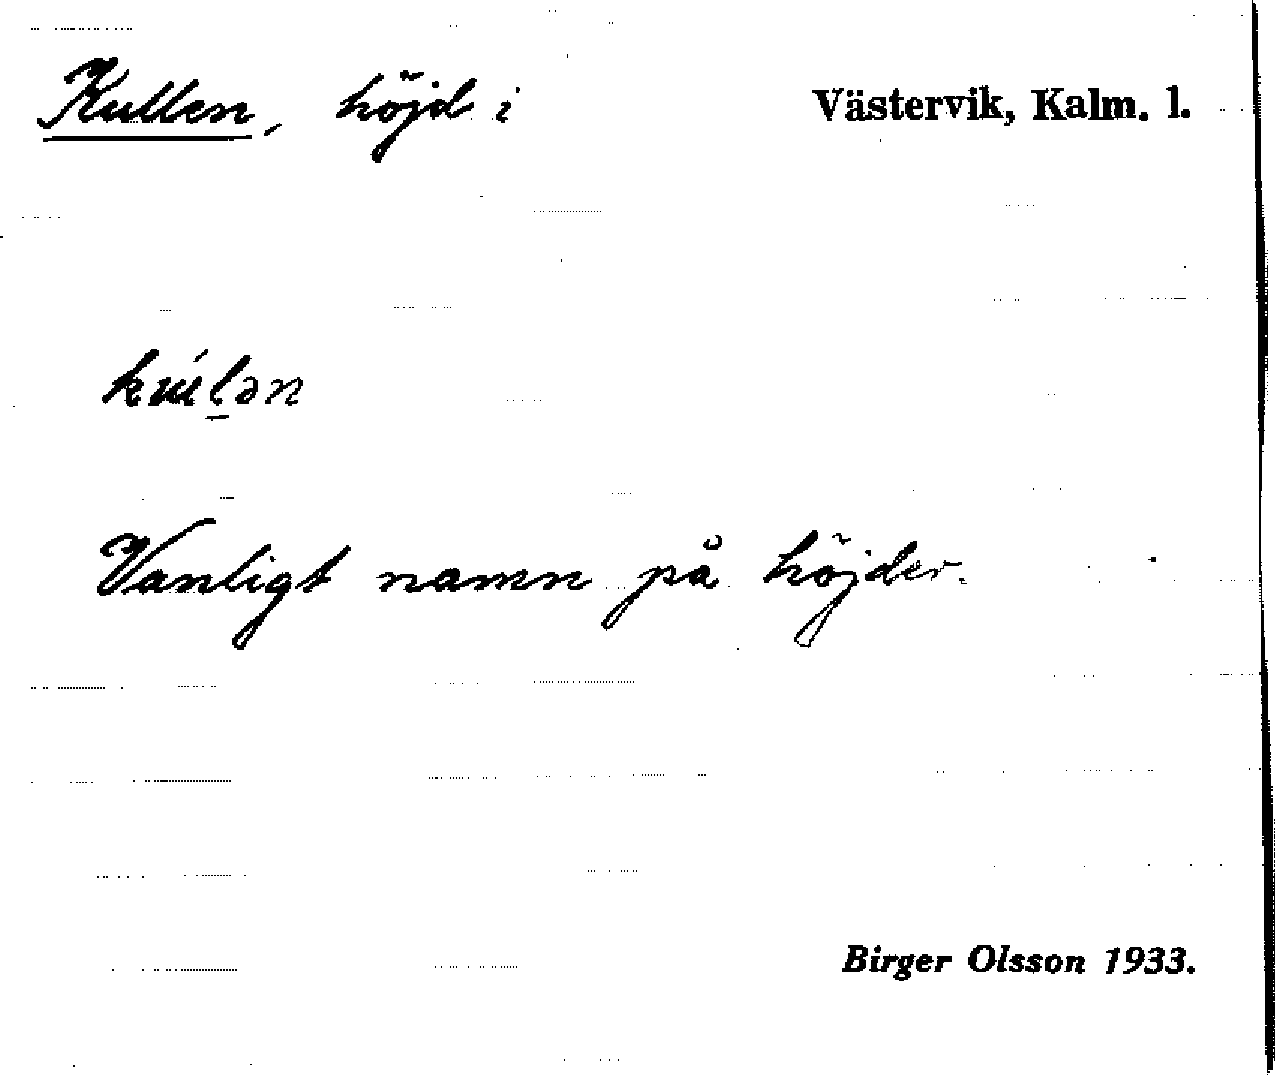 Kullen, höjd i Västervik, Kalm. l.
kúl̲ən
Vanligt namn på höjder.
Birger Olsson 1933.